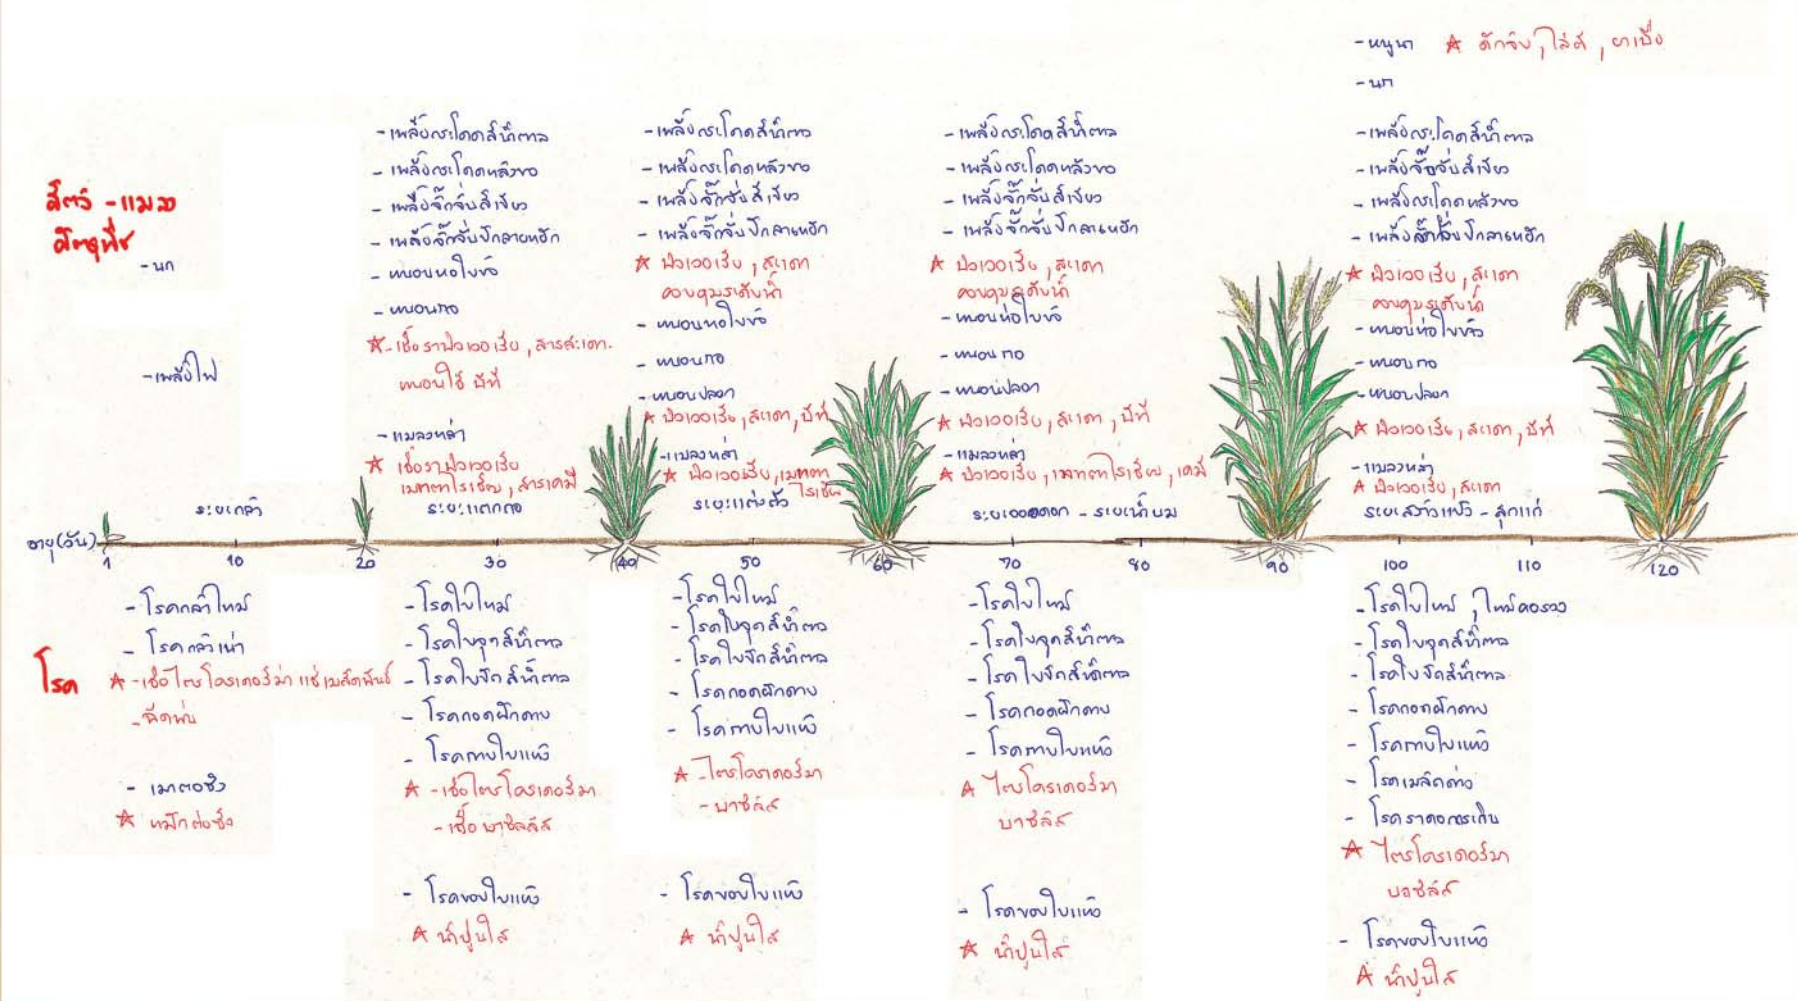 สัตว์ - แมลง
ศัตรูพืช
- นก
- เพลี้ยไฟ
ระยะกล้า
- เพลี้ยกระโดดสีน้ำตาล
- เพลี้ยกระโดดหลังขาว
- เพลี้ยจั๊กจั่นสีเขียว
- เพลี้ยจั๊กจั่นปีกลายหยัก
- หนอนห่อใบข้าว
- หนอนกอ
☆ - เชื้อราบิวเวอเรีย, สารสะเดา
หนอนใช้ บีที
- แมลงหล่า
☆ เชื้อราบิวเวอเรีย
เมทตาไรเซียม, สารเคมี
ระยะแตกกอ
- เพลี้ยกระโดดสีน้ำตาล
- เพลี้ยกระโดดหลังขาว
- เพลี้ยจั๊กจั่นสีเขียว
- เพลี้ยจั๊กจั่นปีกลายหยัก
☆ บิวเวอเรีย, สะเดา
ควบคุมระดับน้ำ
- หนอนห่อใบข้าว
- หนอนกอ
- หนอนปลอก
☆ บิวเวอเรีย, สะเดา, บีที
- แมลงหล่า
☆ บิวเวอเรีย, เมทตา
ไรเซียม
ระยะแต่งตัว
- เพลี้ยกระโดดสีน้ำตาล
- เพลี้ยกระโดดหลังขาว
- เพลี้ยจั๊กจั่นสีเขียว
- เพลี้ยจั๊กจั่นปีกลายหยัก
☆ บิวเวอเรีย, สะเดา
ควบคุมระดับน้ำ
- หนอนห่อใบข้าว
- หนอนกอ
- หนอนปลอก
☆ บิวเวอเรีย, สะเดา, บีที
- แมลงหล่า
☆ บิวเวอเรีย, เมทตาไรเซียม, เคมี
ระยะออกดอก - ระยะน้ำนม
- หนูนา ☆ ดักจับ, ไล่ตี, ยาเบื่อ
- นก
- เพลี้ยกระโดดสีน้ำตาล
- เพลี้ยจั๊กจั่นสีเขียว
- เพลี้ยกระโดดหลังขาว
- เพลี้ยจั๊กจั่นปีกลายหยัก
☆ บิวเวอเรีย, สะเดา
ควบคุมระดับน้ำ
- หนอนห่อใบข้าว
- หนอนกอ
- หนอนปลอก
☆ บิวเวอเรีย, สะเดา, บีที
- แมลงหล่า
☆ บิวเวอเรีย, สะเดา
ระยะสร้างแป้ง - สุกแก่
อายุ(วัน) 1 10 20 30 40 50 60 70 80 90 100 110 120
โรค
- โรคกล้าไหม้
- โรคกล้าเน่า
☆ - เชื้อไตรโคเดอร์ม่า แช่เมล็ดพันธุ์
- ฉีดพ่น
- เมาตอซัง
☆ หมักตอซัง
- โรคใบไหม้
- โรคใบจุดสีน้ำตาล
- โรคใบขีดสีน้ำตาล
- โรคกอดฝักดาบ
- โรคกาบใบแห้ง
☆ - เชื้อไตรโครเดอร์มา
- เชื้อบาซิลลัส
- โรคขอบใบแห้ง
☆ น้ำปูนใส
- โรคใบไหม้
- โรคใบจุดสีน้ำตาล
- โรคใบขีดสีน้ำตาล
- โรคกอดฝักดาบ
- โรคกาบใบแห้ง
☆ - ไตรโครเดอร์มา
- บาซิลัส
- โรคขอบใบแห้ง
☆ น้ำปูนใส
- โรคใบไหม้
- โรคใบจุดสีน้ำตาล
- โรคใบขีดสีน้ำตาล
- โรคกอดฝักดาบ
- โรคกาบใบแห้ง
☆ ไตรโครเดอร์มา
บาซิลัส
- โรคขอบใบแห้ง
☆ น้ำปูนใส
- โรคใบไหม้, ไหม้คอรวง
- โรคใบจุดสีน้ำตาล
- โรคใบขีดสีน้ำตาล
- โรคกอดฝักดาบ
- โรคกาบใบแห้ง
- โรคเมล็ดด่าง
- โรคราดอกกระถิน
☆ ไตรโครเดอร์มา
บาซิลัส
- โรคขอบใบแห้ง
☆ น้ำปูนใส